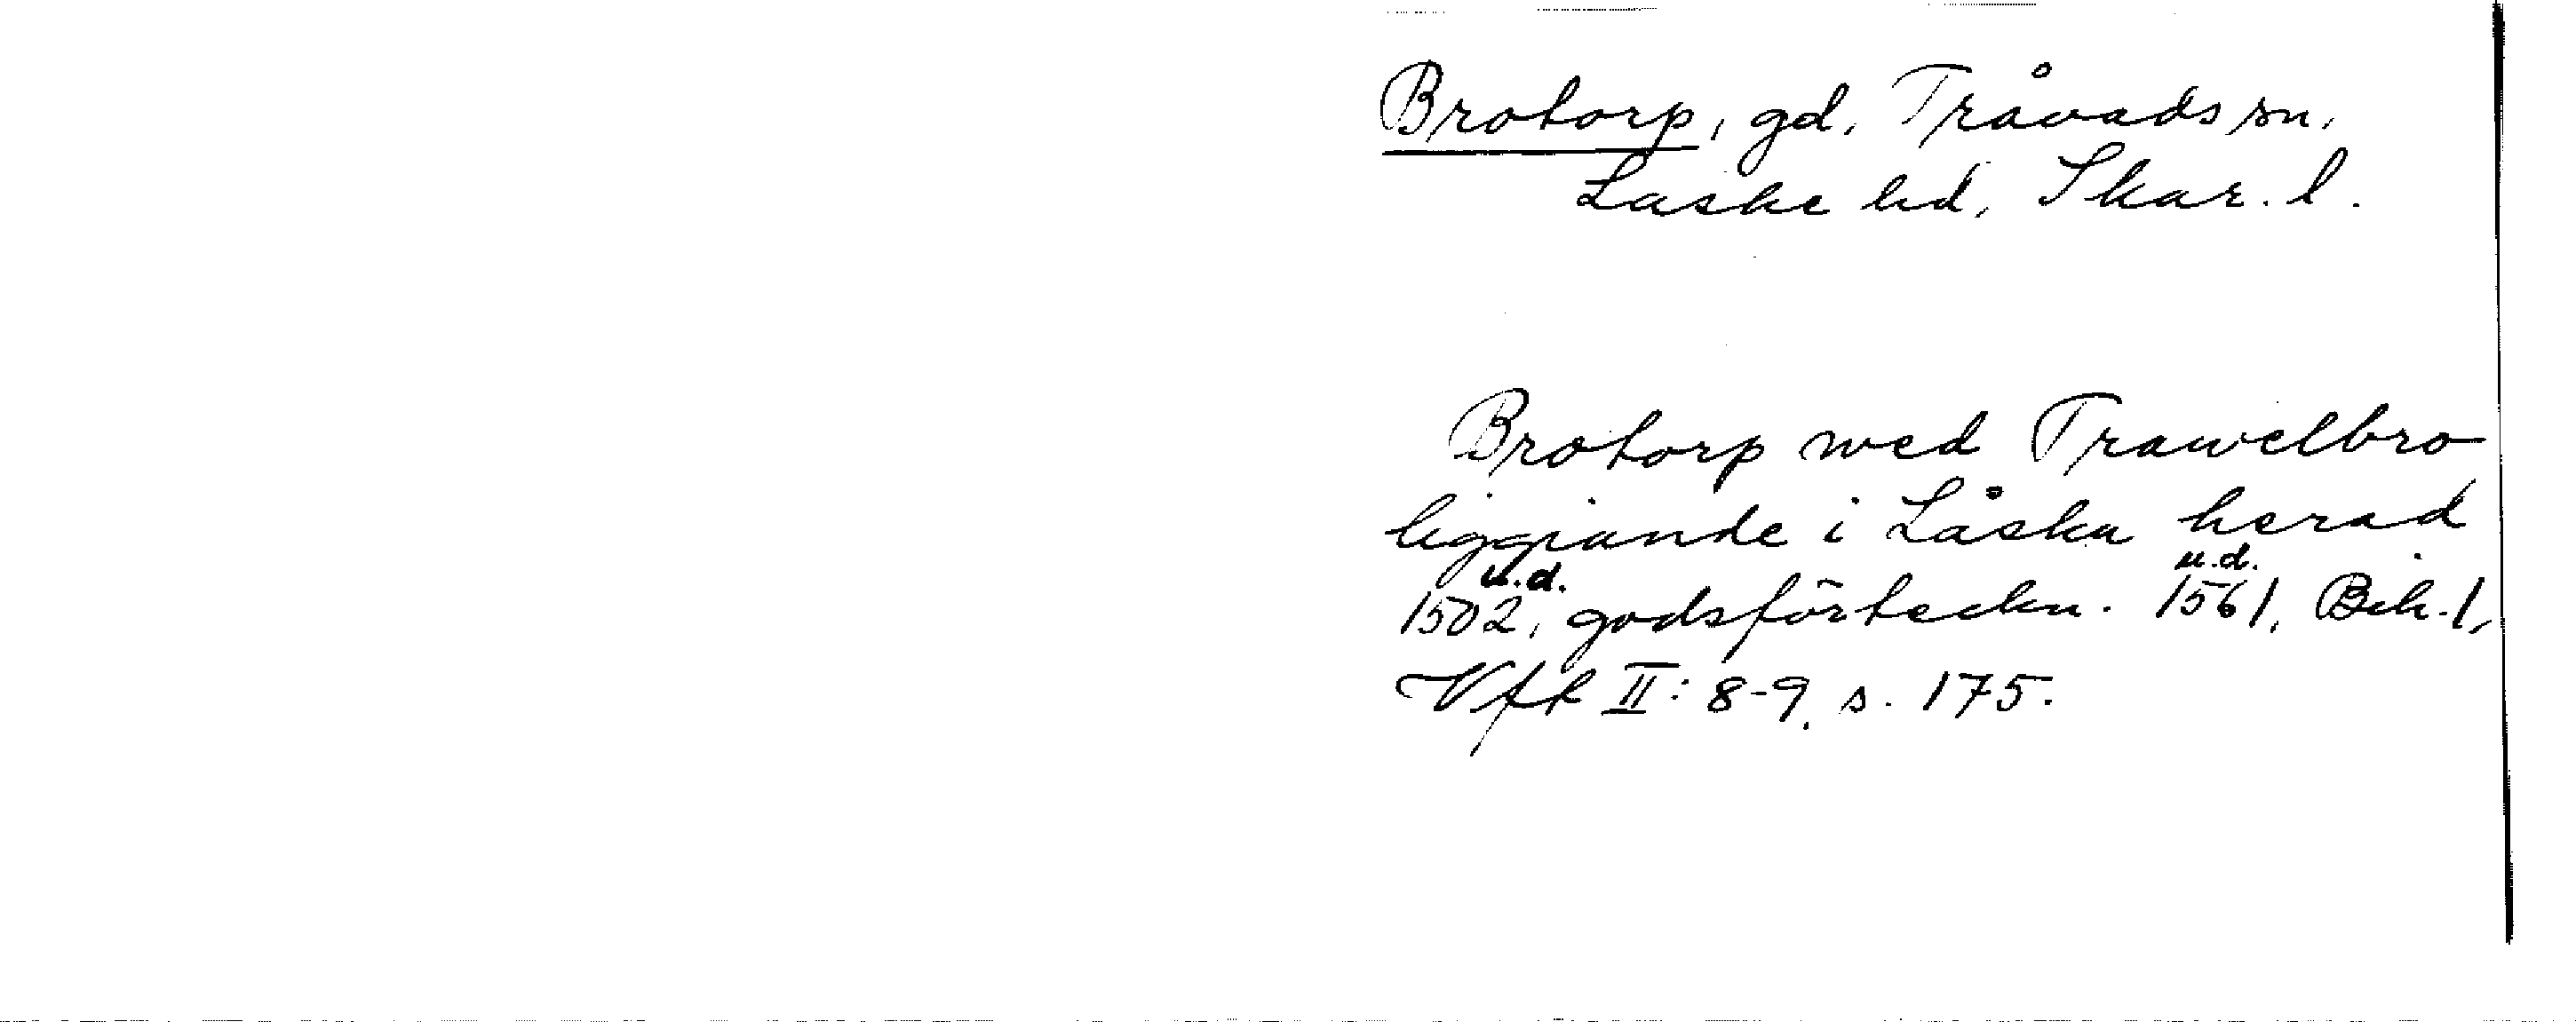 Brotorp, gd, Tråvads sn,
Laske hd, Skar. l.
Brotorp wed Trawelbro
liggiande i Låska herad
1502 u.d., godsförteckn. 1561 u.d., Bih. 1,
Vff II: 8-9, s. 175.